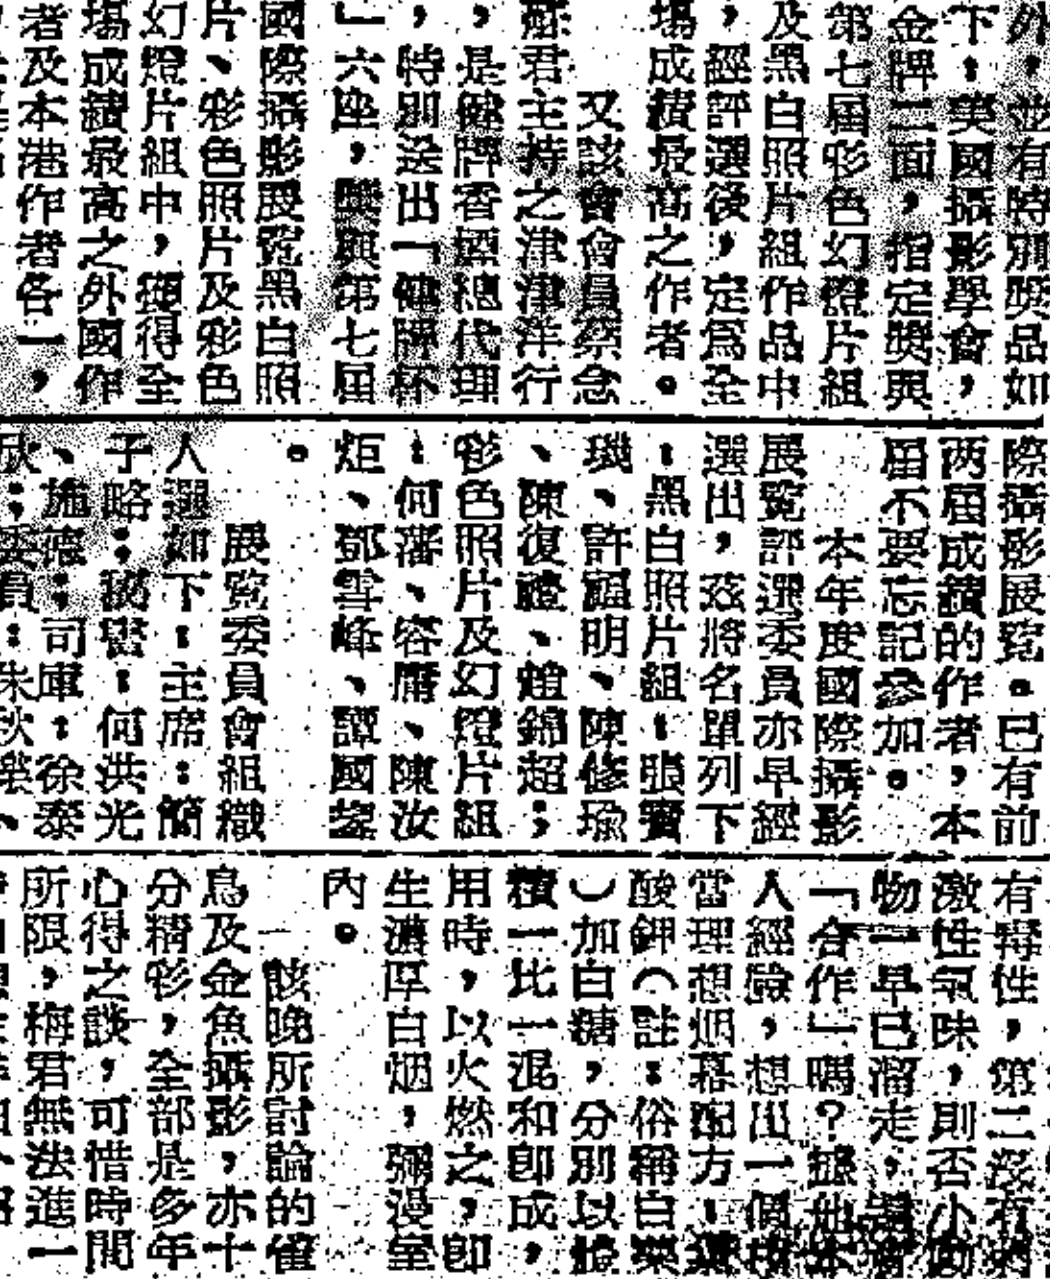 外，並有特別獎品如
下：美國攝影學會，
金牌二面，指定獎與
第七屆彩色幻燈片組
及黑白照片組作品中
，經評選後，定爲全
場成績最高之作者。
又該會會員蔡念
君主持之津津洋行
，是健牌香煙總代理
，特別送出「健牌杯
」六座，獎與第七屆
國際攝影展覽黑白照
片、彩色照片及彩色
幻燈片組中，獲得全
場成績最高之外國作
者及本港作者各一，
際攝影展覽。已有前
两屆成績的作者，本
屆不要忘記參加。
本年度國際攝影
展覽評選委員亦早經
選出，茲將名單列下
：黑白照片組：張寶
璣、許明、陳修瑜
、陳復禮、趙錦超；
彩色照片及幻燈片組
：何藩、容膺、陳汝
炬、鄧雪峰、譚國鋆
。
展覽委員會組織
人選如下：主席：簡
子略；秘書：何洪光
、施德；司庫：徐泰
欣；委員：朱秋、
有毒性，第二沒有刺
激性氣味，則否小動
物一早已溜走，
「合作」嗎？據他本
人經驗，想出一個
當理想烟幕配方，
酸鉀（註：俗稱白藥
）加白糖，分別以體
積一比一混和卽成，
用時，以火燃之，卽
生濃厚白烟，彌漫室
內。
該晚所討論的雀
鳥及金魚攝影，亦十
分精彩，全部是多年
心得之談，可惜時間
所限，梅君無法進一